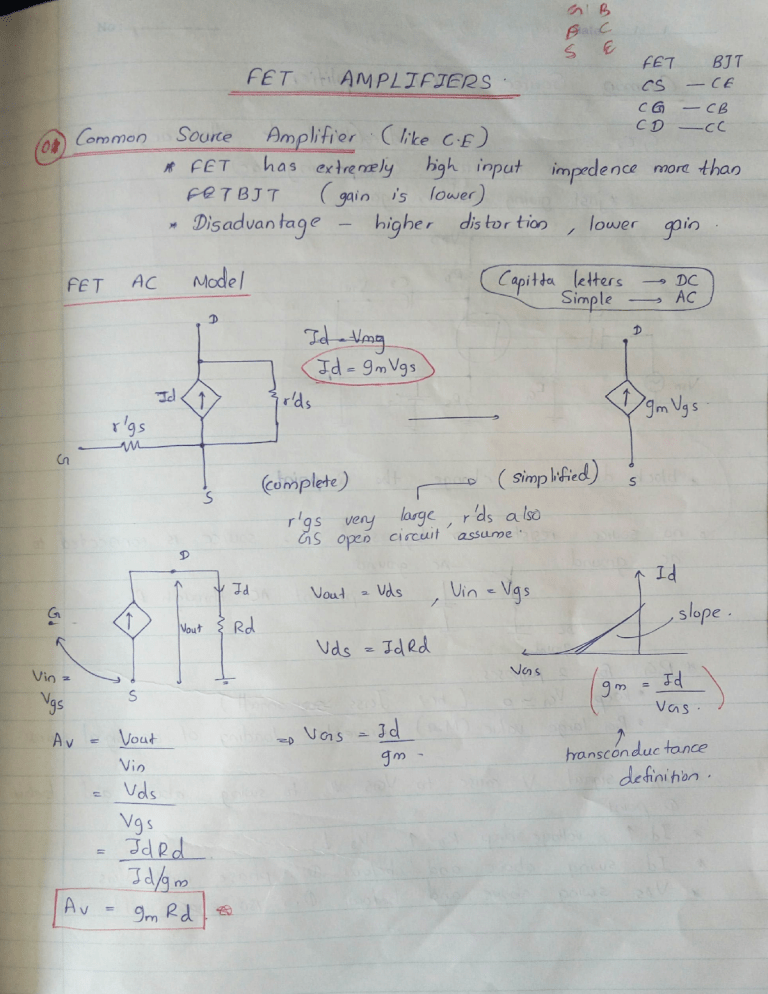 G B
B C
S E
FET AMPLIFIERS
FET BJT
CS — CE
CG — CB
CD — CC
01 Common Source Amplifier (like C.E)
* FET has extremely high input impedence more than
FET BJT (gain is lower)
* Disadvantage - higher distortion, lower gain.
FET AC Model
Capitta letters → DC
Simple → AC
D
Id = Vmg
Id = gmVgs
D
Id
r'ds
gm Vgs
r'gs
G
S
(complete)
(simplified)
S
r'gs very large, r'ds also
GS open circuit assume.
D
Id
Vout
Rd
G
Vin =
Vgs
S
Vout = Vds , Vin = Vgs
Vds = IdRd
Id
slope.
VGS
(gm = Id / VGS.)
transconductance
definition.
Av = Vout / Vin
⇒ VGS = Id / gm
= Vds / Vgs
= IdRd / Id/gm
Av = gm Rd